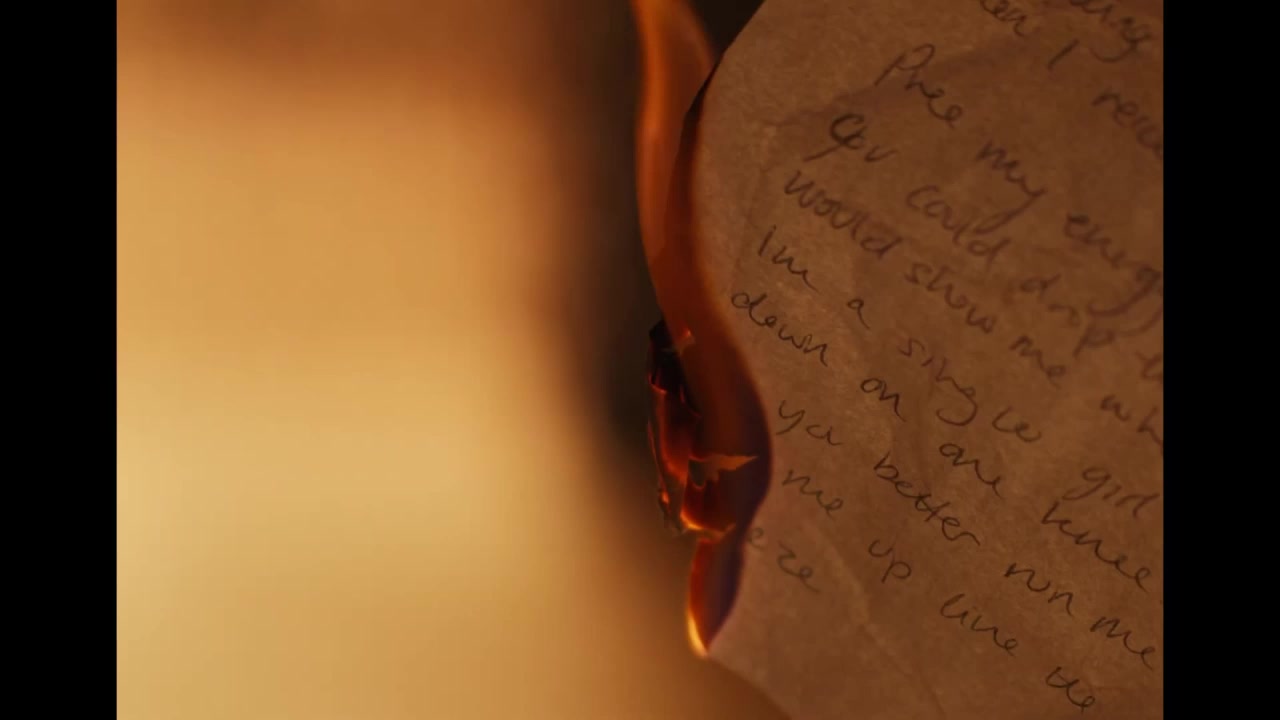 my energ
You could drip
would show me wh
im a single girl
down on one knee
ya better run me
me up line the
eze